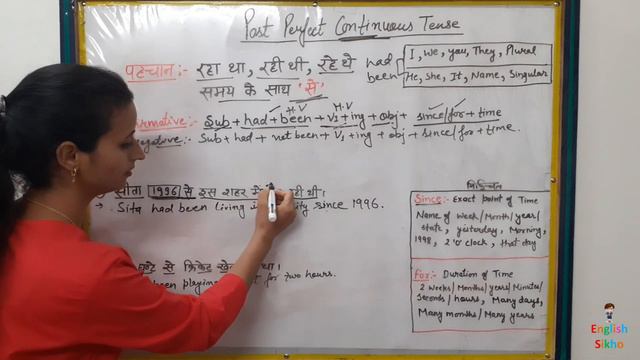 Past Perfect Continuous Tense
पहचान:- रहा था, रही थी, रहे थे
समय के साथ 'से'
had
been
I, we, you, They, Plural
He, she, It, Name, Singular
H.V H.V
Sub + had + been + V₁ + ing + obj + since/for + time
Sub + had + not been + V₁ + ing + obj + since/for + time.
1996 से इस शहर में थी।
→ Sita had been living since 1996.
से क्रिकेट था।
for two hours.
निश्चित
Since:- Exact point of Time
Name of week/Month/year/
state, yesterday, Morning,
1998, 2 'o' clock, that day
For:- Duration of Time
2 weeks/Months/years/Minutes/
Seconds/hours, Many days,
Many months/Many years
English
Sikho